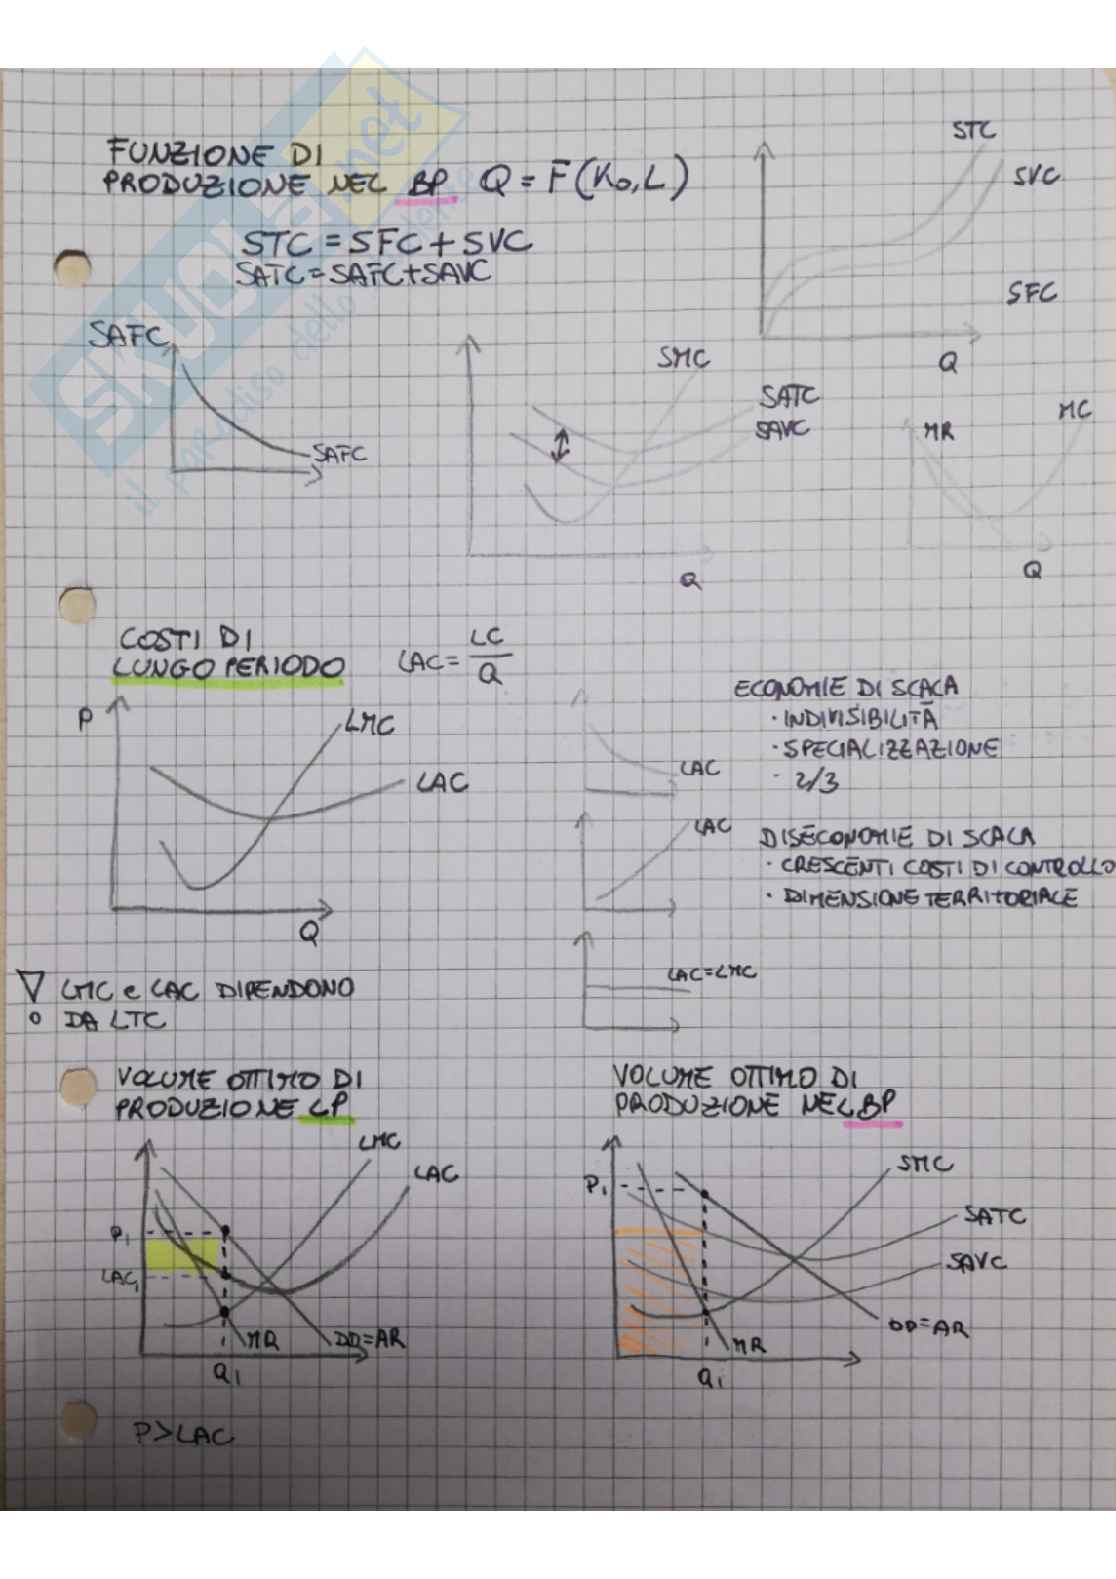 FUNZIONE DI
PRODUZIONE NEL BP Q = F(K₀,L)
STC = SFC + SVC
SATC = SAFC + SAVC
STC
SVC
SFC
Q
SAFC
SAFC
SMC
SATC
SAVC
Q
MR
MC
Q
COSTI DI
LUNGO PERIODO
LAC = LC/Q
P
LMC
LAC
Q
LAC
ECONOMIE DI SCALA
· INDIVISIBILITÀ
· SPECIALIZZAZIONE
· 2/3
LAC
DISECONOMIE DI SCALA
· CRESCENTI COSTI DI CONTROLLO
· DIMENSIONE TERRITORIALE
LAC=LMC
LMC e LAC DIPENDONO
DA LTC
VOLUME OTTIMO DI
PRODUZIONE LP
LMC
LAC
P₁
LAC₁
MR
DD=AR
Q₁
P>LAC
VOLUME OTTIMO DI
PRODUZIONE NEL BP
P₁
SMC
SATC
SAVC
DD=AR
MR
Q₁
SKUOLA.net